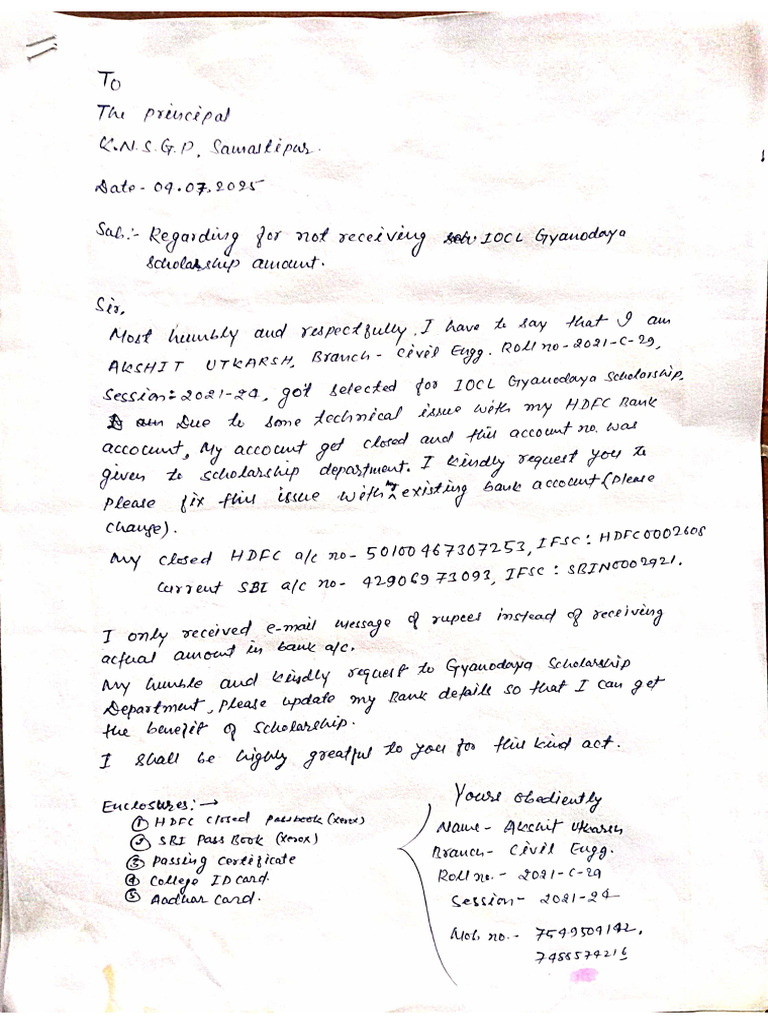 To
The principal
K.N.S.G.P, Samastipur.
Date - 09.07.2025
Sub:- Regarding for not receiving IOCL Gyanodaya
Scholarship amount.
Sir,
Most humbly and respectfully, I have to say that I am
AKSHIT UTKARSH, Branch - Civil Engg. Roll no - 2021-C-29,
Session:- 2021-24, got selected for IOCL Gyanodaya Scholarship.
Due to some technical issue with my HDFC Bank
accocunt, My account get closed and this account no. was
given to scholarship department. I kindly request you to
please fix this issue with my existing bank account (Please
change).
My closed HDFC a/c no- 50100467307253, IFSC: HDFC0002608
Current SBI a/c no- 42906973093, IFSC: SBIN0002921.
I only received e-mail message of rupees instead of receiving
actual amount in bank a/c.
My humble and kindly request to Gyanodaya Scholarship
Department, please update my Bank details so that I can get
the benefit of Scholarship.
I shall be highly greatful to you for this kind act.
Enclosures:→
① HDFC closed Passbook (xerox)
② SBI Pass Book (xerox)
③ Passing Certificate
④ College ID card.
⑤ Aadhar Card.
Yours obediently
Name- Akshit Utkarsh
Branch- Civil Engg.
Roll no. - 2021-C-29
Session- 2021-24
Mob. no. - 7549509142,
7488574216